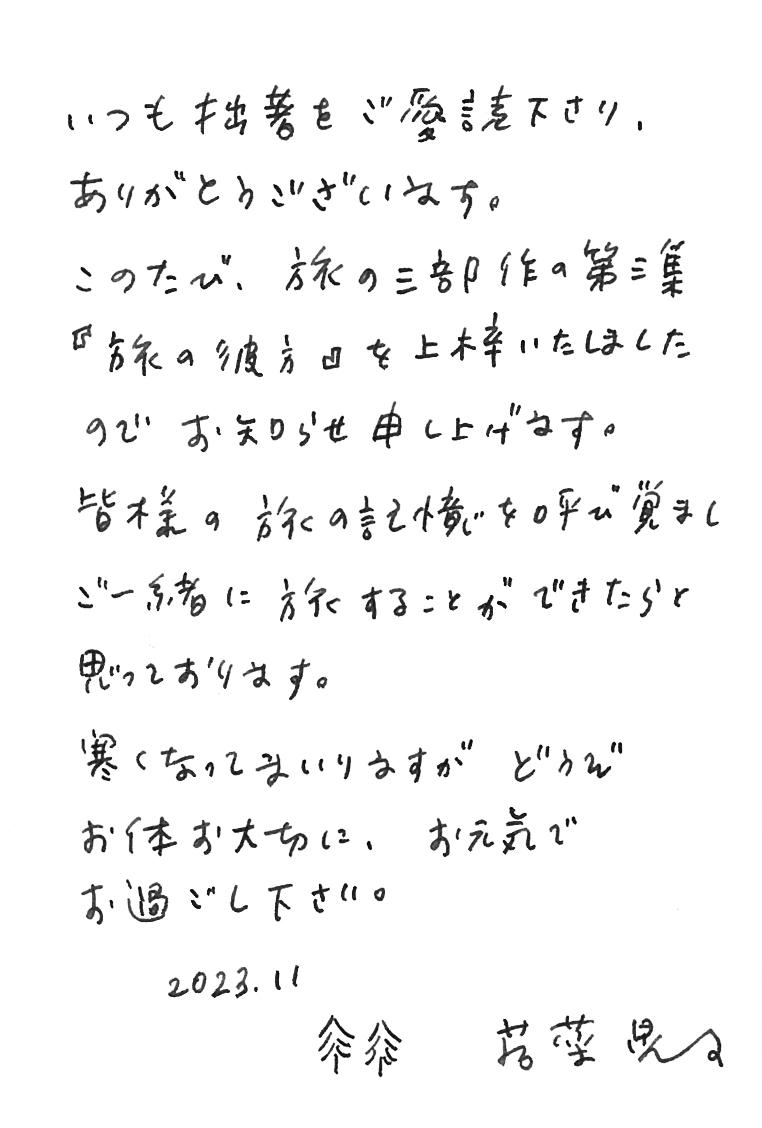 いつも拙著をご愛読下さり、
ありがとうございます。
このたび、旅の三部作の第三集
『旅の彼方』を上梓いたしました
のでお知らせ申し上げます。
皆様の旅の記憶を呼び覚まし
ご一緒に旅することができたらと
思っております。
寒くなってまいりますがどうぞ
お体お大切に、お元気で
お過ごし下さい。
2023.11
若菜晃子